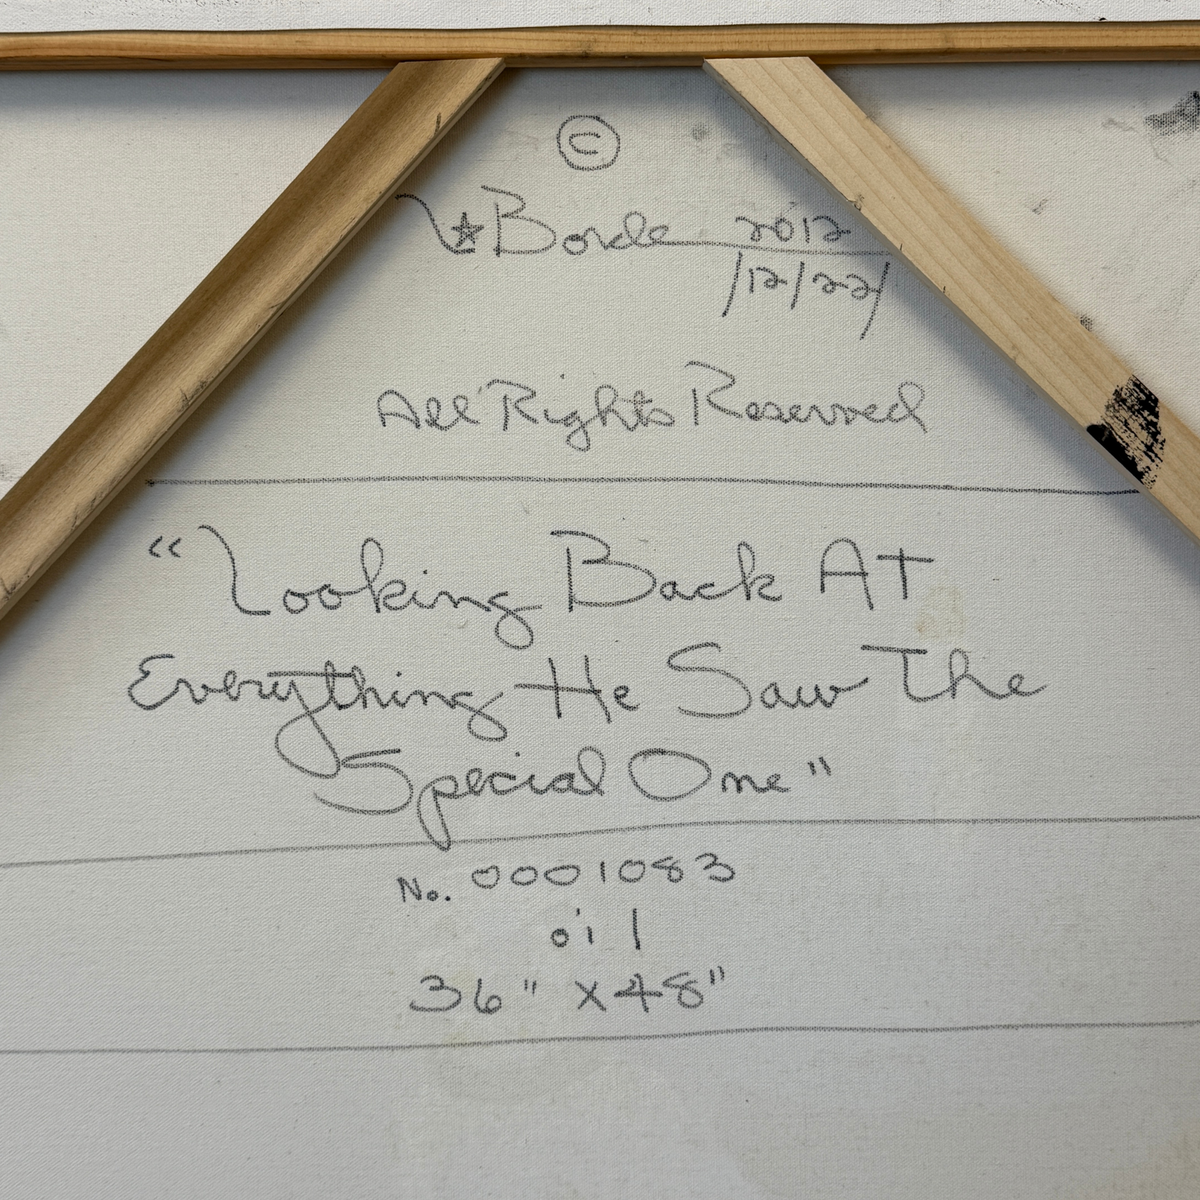 ©
L★Borde 2012
/12/22/
All Rights Reserved
“Looking Back At
Everything He Saw The
Special One”
No. 0001083
oil
36" x 48"